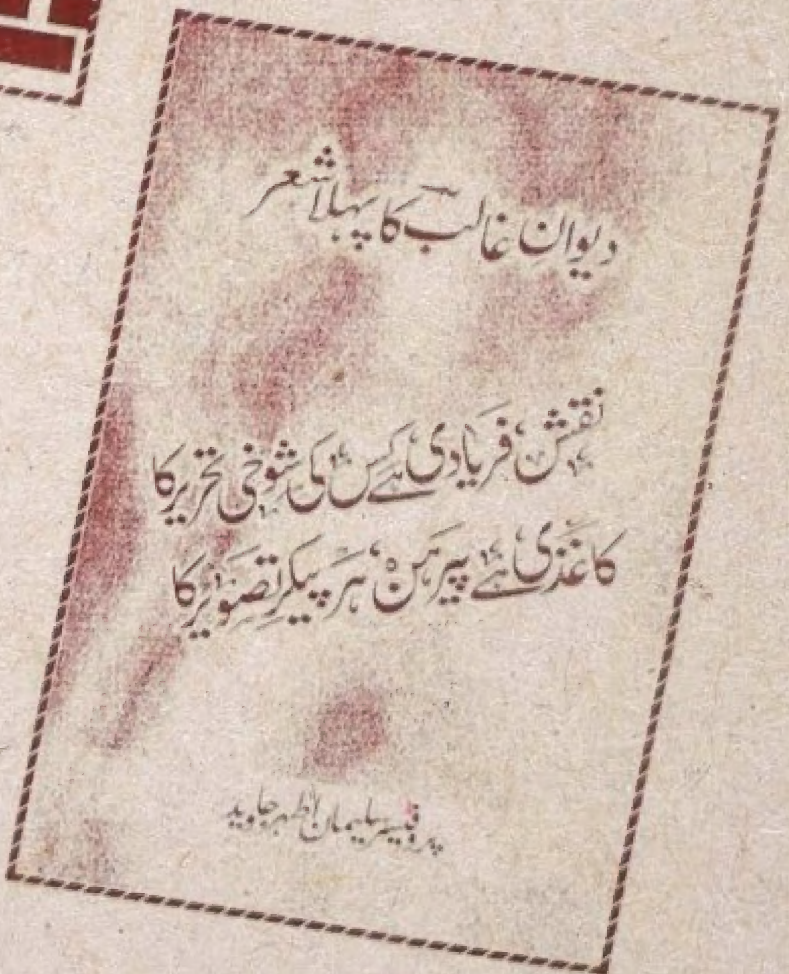 دیوانِ غالب کا پہلا شعر
نقش، فریادی ہے کس کی شوخیٔ تحریر کا
کاغذی ہے پیرہن، ہر پیکرِ تصویر کا
پروفیسر سلیمان اطہر جاوید